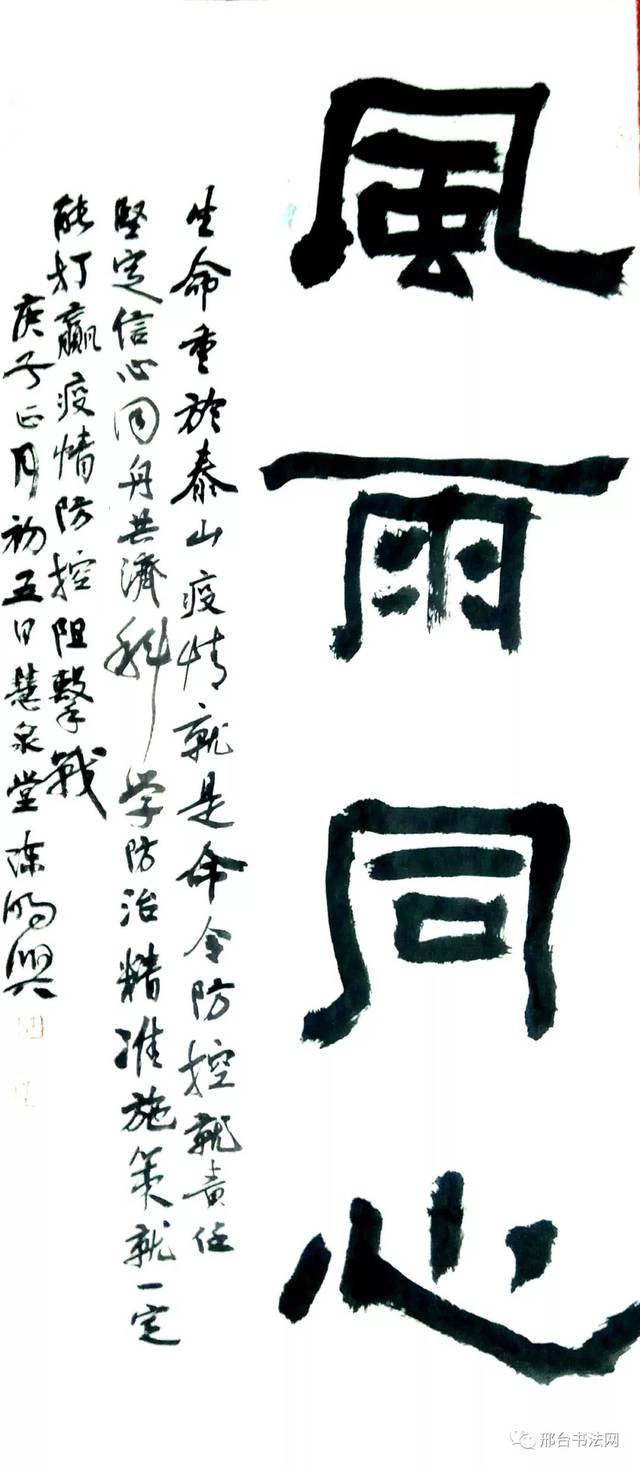 風雨同心
生命重於泰山疫情就是命令防控就責任
堅定信心同舟共濟科学防治精准施策就一定
能打贏疫情防控阻擊戰
庚子正月初五日慧泉堂陳鳴興
邢台书法网